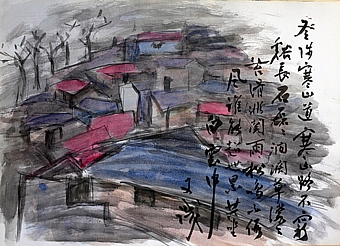 登陟寒山道寒山路不窮
谿長石磊々澗闊草濛々
苔滑非関雨松鳴不假
風誰能超世累
白雲中